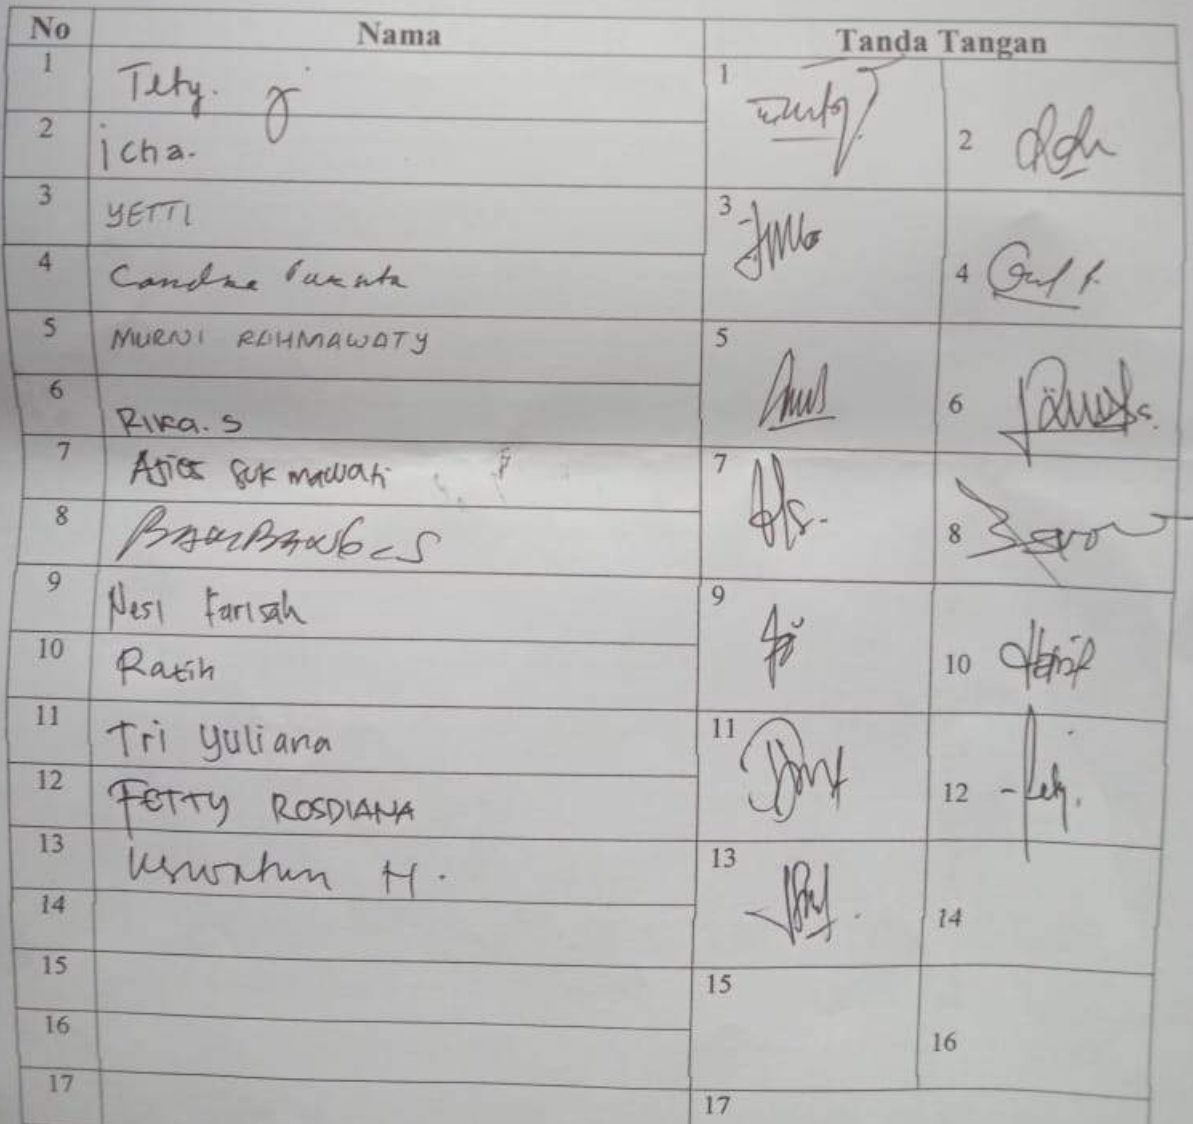 No Nama Tanda Tangan
1 Tety. 1
2 icha. 2
3 YETTI 3
4 Candra 4
5 MURNI RAHMAWATY 5
6 Rika. S 6
7 Sukmawati 7
8 BAMBANG - S 8
9 Nesi Farisah 9
10 Ratih 10
11 Tri Yuliana 11
12 FETTY ROSDIANA 12
13 Uswatun H. 13
14 14
15 15
16 16
17 17